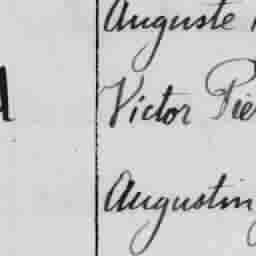 Auguste
Victor Pie
Augustin